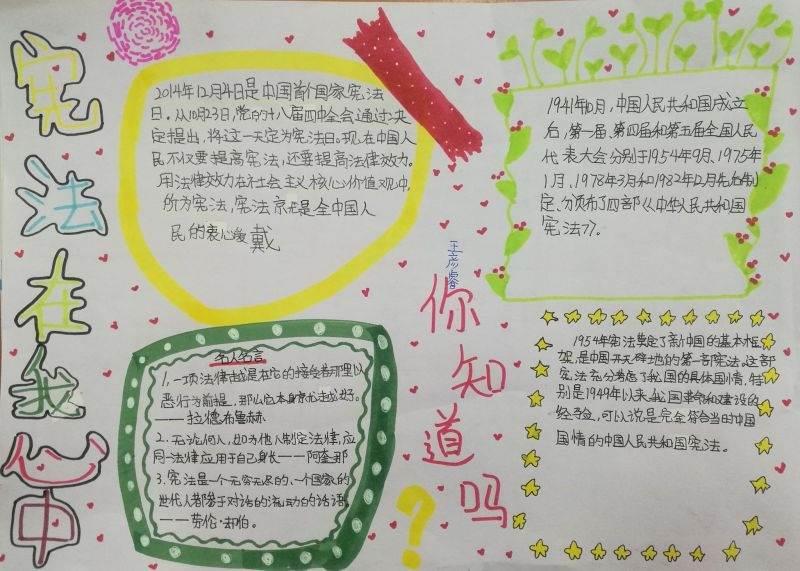 宪法在我心中
2014年12月4日是中国首个国家宪法
日。从10月23日,党的十八届四中全会通过决
定提出,将这一天定为宪法日。现在中国人
民不仅要提高宪法,还要提高法律效力。
用法律效力在社会主义核心价值观中,
价为宪法,宪法亦是全中国人
民的衷心爱戴
1941年10月,中国人民共和国成立
后,第一届、第四届和第五届全国人民
代表大会分别于1954年9月、1975年
1月、1978年3月和1982年12月先后制
定、分颁布了四部《中华人民共和国
宪法》。
王彦睿
你知道吗?
名人名言
1.一项法律越是在它的接受者那里以
恶行为前提,那么它本身就越好。
——拉德布鲁赫
2.无论何人,如为他人制定法律,应
用同一法律应用于自己身长——阿奎那
3.宪法是一个无穷无尽的、一个国家的
世代人都参于对话的流动的话语
——劳伦·却伯。
1954年宪法奠定了新中国的基本框
架,是中国开天辟地的第一部宪法。这部
宪法充分考虑了我国的具体国情,特
别是1949年以来我国革命和建设的
经验,可以说是完全符合当时中国
国情的中国人民共和国宪法。